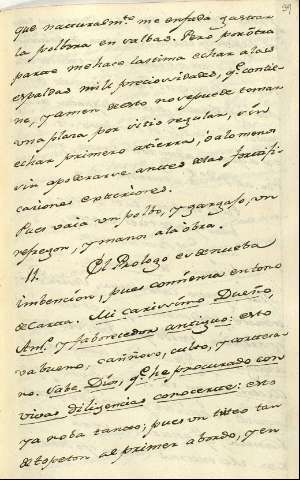 que naturalm.te me enfada gastar
la polbora en salbas. Pero por otra
parte me hace lastima echar a las
espaldas mil preciosidades, q.e contie-
ne, y amen de esto no se puede tomar
una plaza por sitio regular, sin
echar primero a tierra, ó a lo menos
sin apoderarse antes de las fortifi-
caciones exteriores.
Pues vaia un polbo, y gargajo, un
refregon, y manos a la obra.
11. El Prologo es de nueba
imbencion, pues comienza en tono
de Carta. Mi carissimo Dueño,
Am.o y faborecedor antiguo: esto
va bueno, cariñoso, culto, y cortesa-
no. Sabe Dios, q.e he procurado con
vivas diligencias conocerte: esto
ya no ba tanto; pues un tuteo tan
de topeton al primer abordo, y en